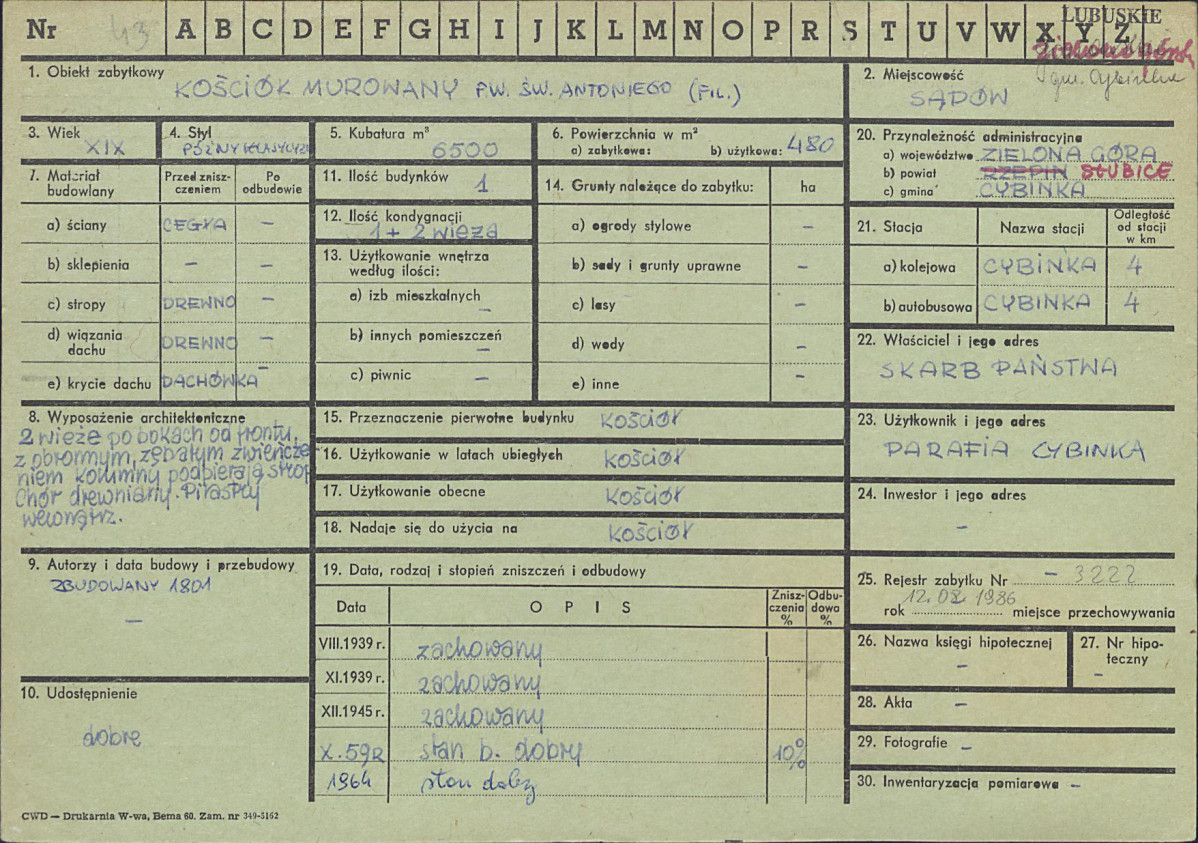 Nr 43 A B C D E F G H I J K L M N O P R S T U V W X Y Z
LUBUSKIE
zielonogórsk
gm. Cybinka
1. Obiekt zabytkowy
KOŚCIÓŁ MUROWANY PW. ŚW. ANTONIEGO (FIL.)
2. Miejscowość
SĄDÓW
3. Wiek
XIX
4. Styl
PÓŹNY KLASYCYZM
5. Kubatura m³
6500
6. Powierzchnia w m²
a) zabytkowa: b) użytkowa: 480
7. Materiał budowlany
Przed znisz-
czeniem
Po
odbudowie
a) ściany CEGŁA –
b) sklepienia – –
c) stropy DREWNO –
d) wiązania
dachu DREWNO –
e) krycie dachu DACHÓWKA –
8. Wyposażenie architektoniczne
2 wieże po bokach od frontu,
z obronnym, zębatym zwieńcze
niem kolumny podpierają strop
Chór drewniany. Pilastry
wewnątrz.
9. Autorzy i data budowy i przebudowy
ZBUDOWANY 1801
–
10. Udostępnienie
dobre
11. Ilość budynków 1
12. Ilość kondygnacji
1 + 2 wieża
13. Użytkowanie wnętrza
według ilości:
a) izb mieszkalnych
–
b) innych pomieszczeń
–
c) piwnic –
14. Grunty należące do zabytku: ha
a) ogrody stylowe –
b) sady i grunty uprawne –
c) lasy –
d) wody –
e) inne –
15. Przeznaczenie pierwotne budynku kościół
16. Użytkowanie w latach ubiegłych kościół
17. Użytkowanie obecne kościół
18. Nadaje się do użycia na kościół
19. Data, rodzaj i stopień zniszczeń i odbudowy
Data O P I S Znisz-
czenia
% Odbu-
dowa
%
VIII.1939 r. zachowany
XI.1939 r. zachowany
XII.1945 r. zachowany
X.59R stan b. dobry 10%
1964 stan dobry
20. Przynależność administracyjna
a) województwo ZIELONA GÓRA
b) powiat RZEPIN SŁUBICE
c) gmina CYBINKA
21. Stacja Nazwa stacji Odległość
od stacji
w km
a) kolejowa CYBINKA 4
b) autobusowa CYBINKA 4
22. Właściciel i jego adres
SKARB PAŃSTWA
23. Użytkownik i jego adres
PARAFIA CYBINKA
24. Inwestor i jego adres
–
25. Rejestr zabytku Nr – 3222
12.02.1986
rok miejsce przechowywania
26. Nazwa księgi hipotecznej
–
27. Nr hipo-
teczny
–
28. Akta –
29. Fotografie –
30. Inwentaryzacja pomiarowa –
CWD — Drukarnia W-wa, Bema 60. Zam. nr 349-5162